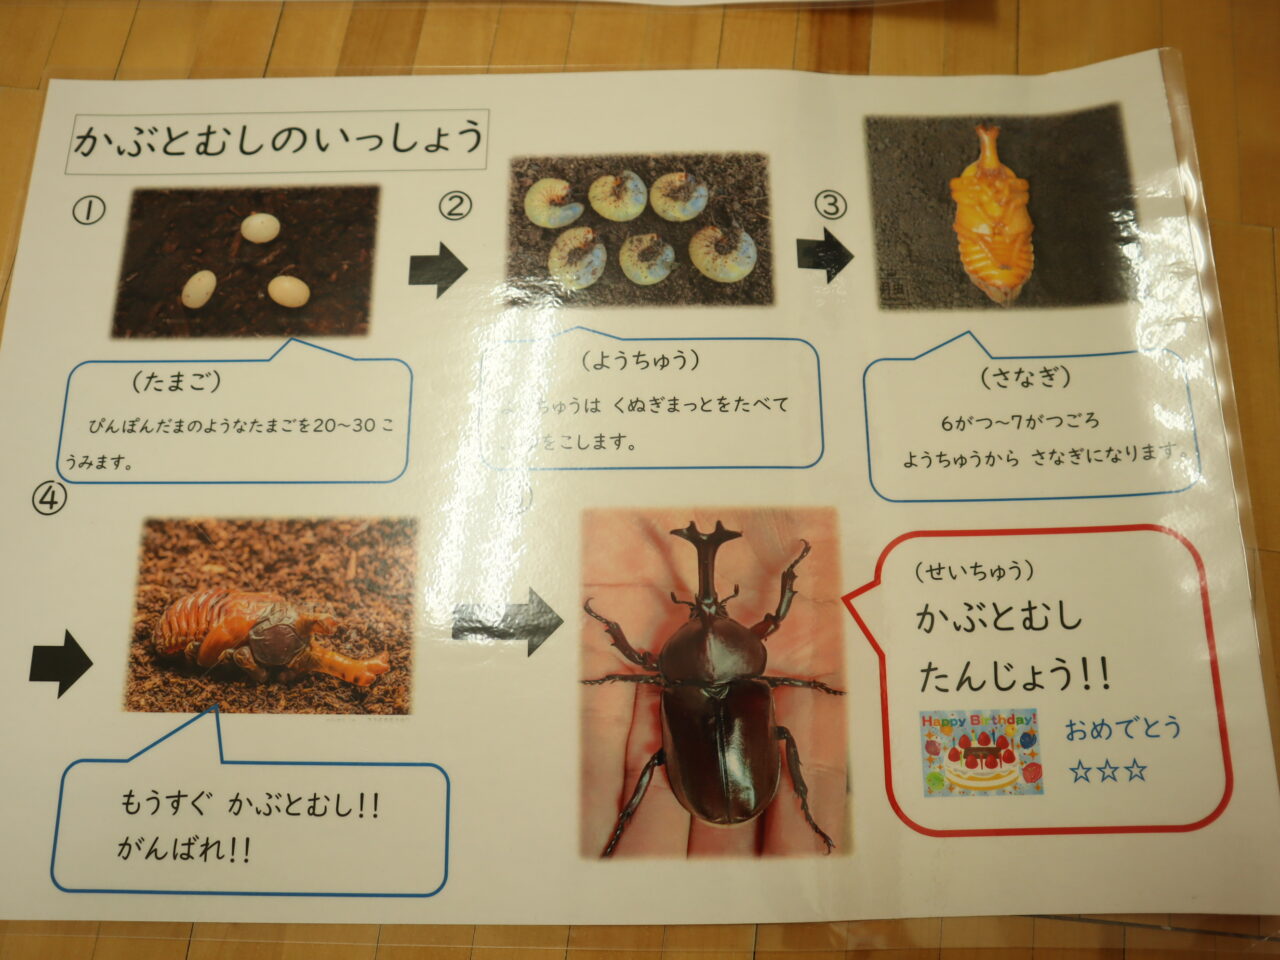 かぶとむしのいっしょう
①
②
③
(たまご)
ぴんぽんだまのようなたまごを20〜30こ
うみます。
(ようちゅう)
ちゅうは くぬぎまっとをたべて
をこします。
(さなぎ)
6がつ〜7がつごろ
ようちゅうから さなぎになります。
④
もうすぐ かぶとむし!!
がんばれ!!
(せいちゅう)
かぶとむし
たんじょう!!
Happy Birthday!
おめでとう
☆☆☆